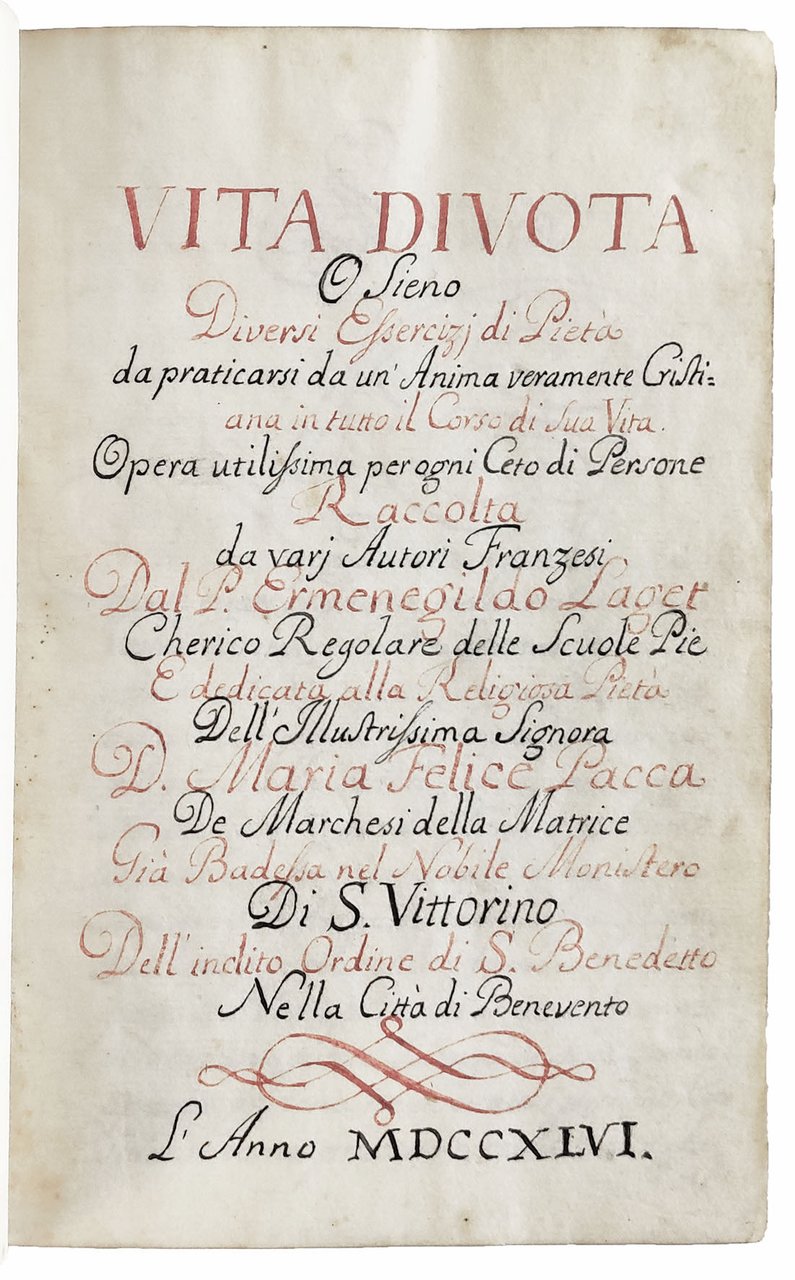 VITA DIVOTA
O Sieno
Diversi Essercizj di Pietà
da praticarsi da un' Anima veramente Cristi=
ana in tutto il Corso di sua Vita.
Opera utilissima per ogni Ceto di Persone
Raccolta
da varj Autori Franzesi
Dal P. Ermenegildo Laget
Cherico Regolare delle Scuole Pie
E dedicata alla Religiosa Pietà
Dell' Illustrissima Signora
D. Maria Felice Pacca
De Marchesi della Matrice
Già Badessa nel Nobile Monistero
Di S. Vittorino
Dell' inclito Ordine di S. Benedetto
Nella Città di Benevento
L' Anno MDCCXLVI.